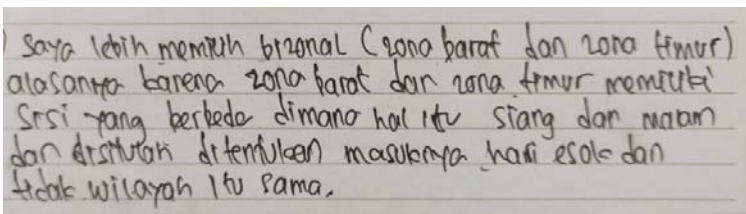 ) Saya lebih memilih bizonal (zona barat dan zona timur)
alasannya karena zona barat dan zona timur memiliki
sisi yang berbeda dimana hal itu siang dan malam
dan disitulah ditentukan masuknya hari esok dan
tidak wilayah itu sama.